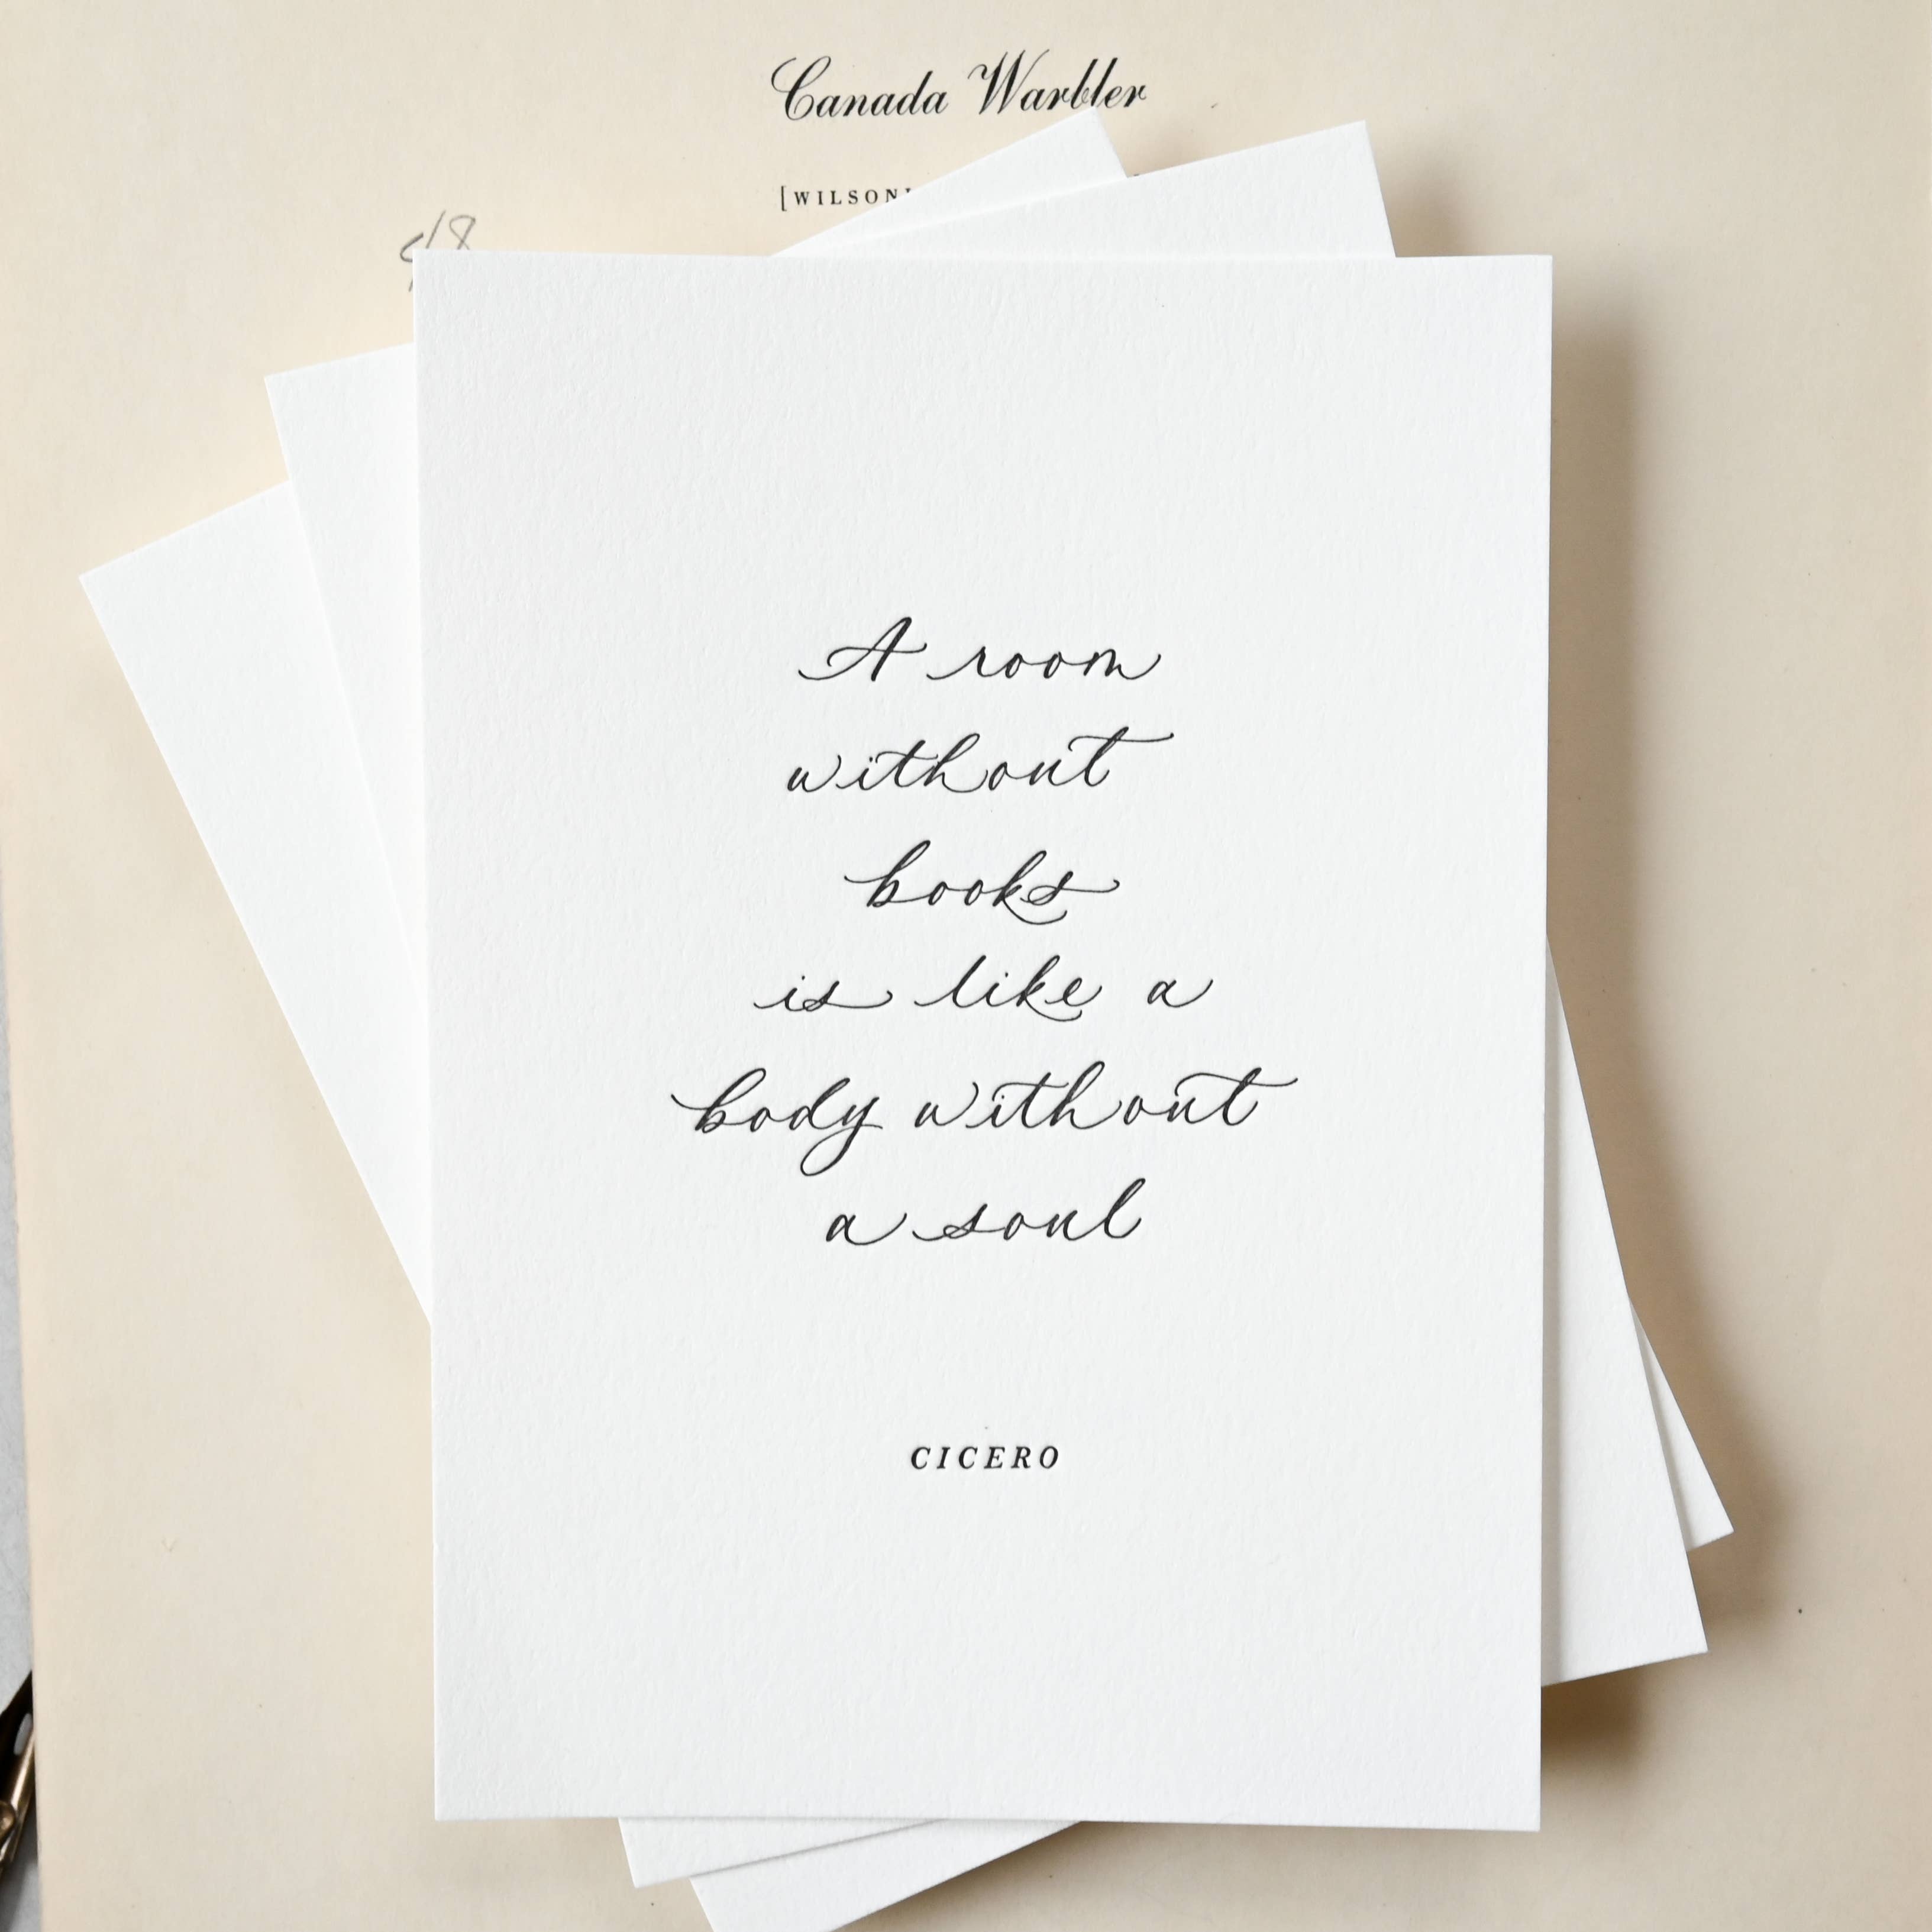 Canada Warbler
48
A room
without
books
is like a
body without
a soul
CICERO